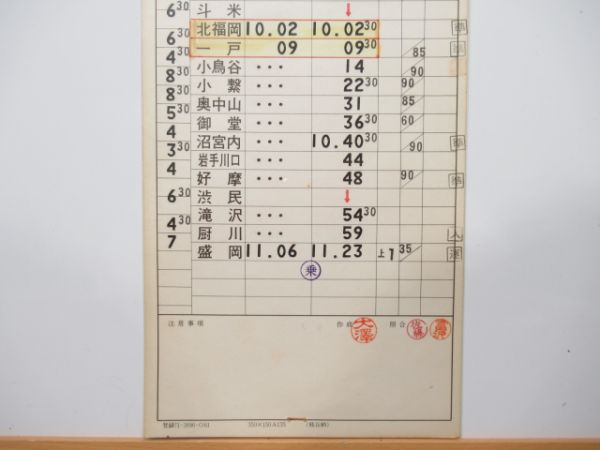 6 30 斗米 ↓
北福岡 10.02 10.02 30
6 30 一戸 09 09 30 85
4 30 小鳥谷 ・・・ 14 90
8 小繋 ・・・ 22 30 90
8 30 奥中山 ・・・ 31 85
5 30 御堂 ・・・ 36 30 60
4 沼宮内 ・・・ 10.40 30 90
3 30 岩手川口 ・・・ 44
4 好摩 ・・・ 48 90
渋民 ↓
6 30 滝沢 ・・・ 54 30
4 30 厨川 ・・・ 59
7 盛岡 11.06 11.23 上1 35
乗
注意事項 作成 大澤 照合
350×150